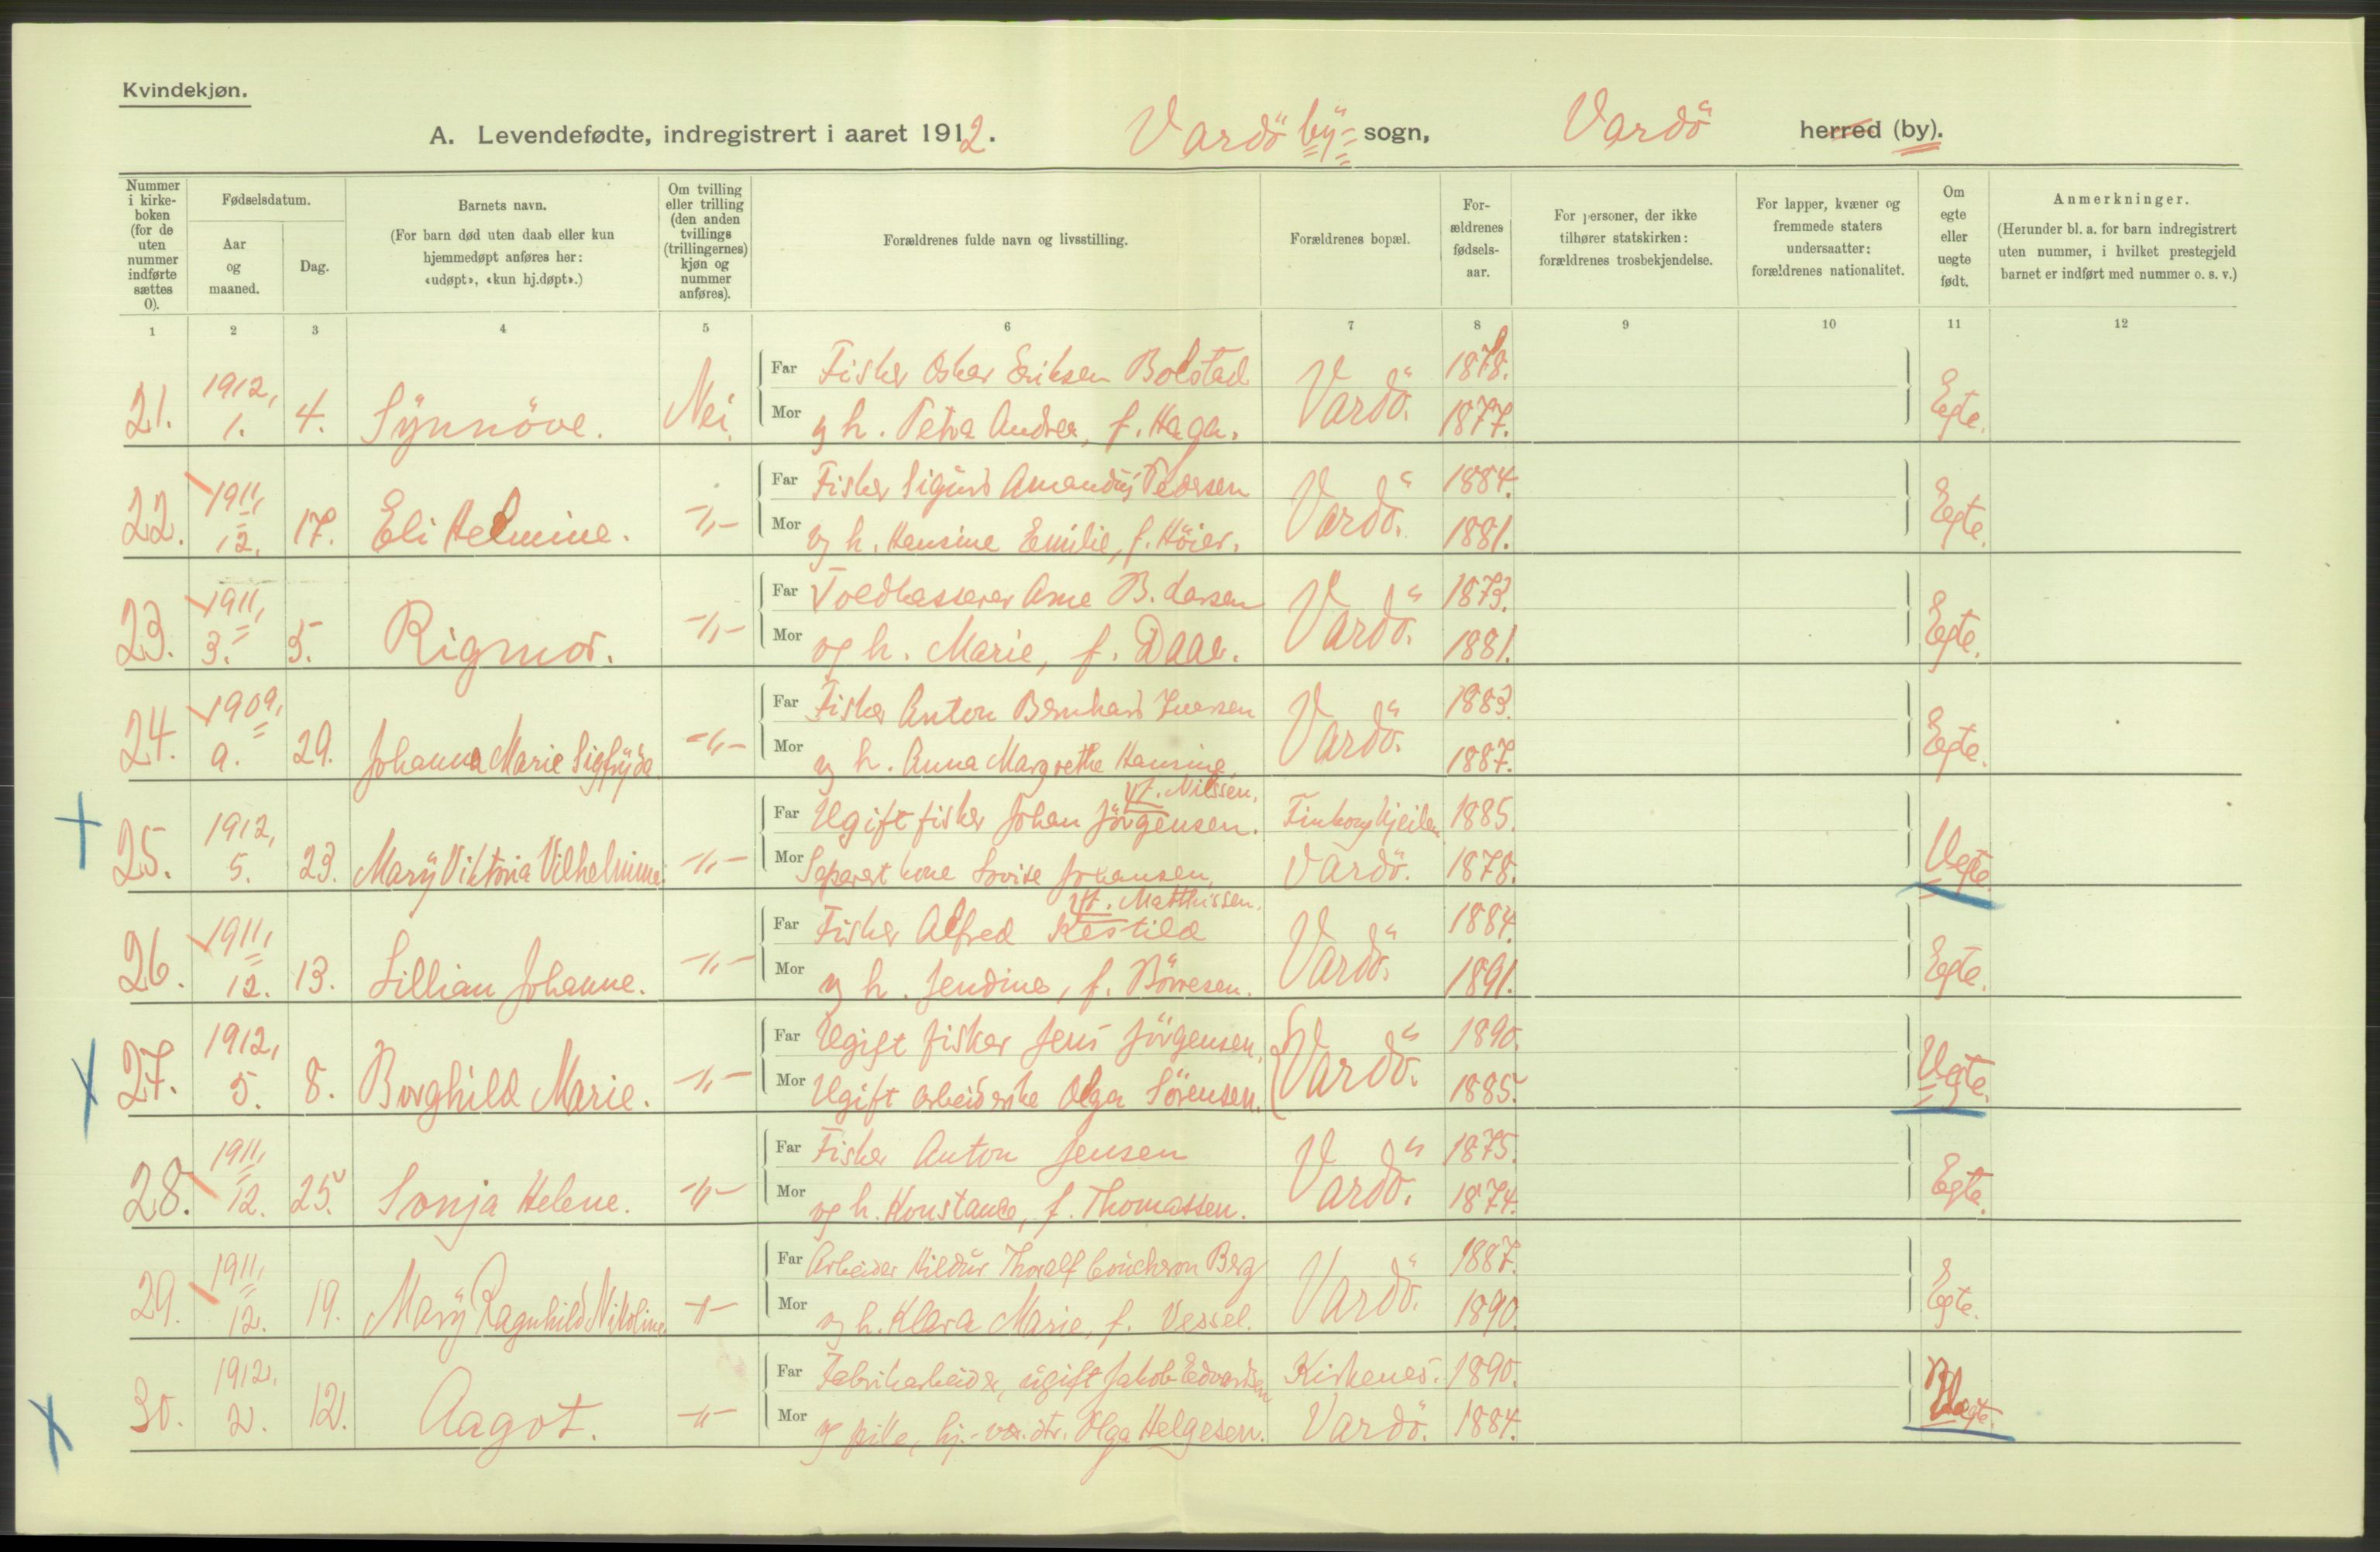 Kvindekjøn.
A. Levendefødte, indregistrert i aaret 1912. Vardö by= sogn, Vardö herred (by).
Nummer i kirkeboken (for de uten nummer indførte sættes 0).
Fødselsdatum.
Aar og maaned.
Dag.
Barnets navn.
(For barn død uten daab eller kun hjemmedøpt anføres her: «udøpt», «kun hj.døpt».)
Om tvilling eller trilling (den anden tvillings (trillingernes) kjøn og nummer anføres).
Forældrenes fulde navn og livsstilling.
Forældrenes bopæl.
Forældrenes fødselsaar.
For personer, der ikke tilhører statskirken: forældrenes trosbekjendelse.
For lapper, kvæner og fremmede staters undersaatter: forældrenes nationalitet.
Om egte eller uegte født.
Anmerkninger.
(Herunder bl. a. for barn indregistrert uten nummer, i hvilket prestegjeld barnet er indført med nummer o. s. v.)
1 2 3 4 5 6 7 8 9 10 11 12
21. 1912, 1. 4. Synnöve. Nei. Far Fisker Oskar Eriksen Bolstad Vardö. 1878. Egte.
Mor og h. Petra Andrea, f. Haga. 1877.
22. 1911, 12. 17. Eli Helmine. -"- Far Fisker Sigurd Amandus Pedersen Vardö. 1884. Egte.
Mor og h. Hansine Emilie, f. Höier. 1881.
23. 1911, 3. 5. Rigmor. -"- Far Toldkasserer Arne B. Larsen Vardö. 1873. Egte.
Mor og h. Marie, f. Daae. 1881.
24. 1909, 9. 29. Johanna Marie Sigfryda -"- Far Fisker Anton Bernhard Iversen Vardö. 1883. Egte.
Mor og h. Anna Margrethe Hansine, 1887.
f. Nilssen.
25. 1912, 5. 23. Mary Viktoria Vilhelmine. -"- Far Ugift fisker Johan Jörgensen. 1885. Uegte.
Mor Separert kone Lovise Johansen, Vardö. 1878.
f. Mathissen.
26. 1911, 12. 13. Lillian Johanne. -"- Far Fisker Alfred Kestild Vardö. 1884. Egte.
Mor og h. Jendine, f. Börresen. 1891.
27. 1912, 5. 8. Borghild Marie. -"- Far Ugift fisker Jens Jörgensen, Vardö. 1890. Uegte.
Mor Ugift arbeiderske Olga Sörensen. 1885.
28. 1911, 12. 25. Sonja Helene. -"- Far Fisker Anton Jensen Vardö. 1875. Egte.
Mor og h. Konstance, f. Thomassen. 1874.
29. 1911, 12. 19. Mary Ragnhild Nikoline. -"- Far Arbeider Hildur Thoralf Coucheron Berg Vardö. 1887. Egte.
Mor og h. Klara Marie, f. Vessel. 1890.
30. 1912, 2. 12. Aagot. -"- Far Fabrikarbeider, ugift Jakob Edvardsen Kirkenes. 1890. Uegte.
Mor og pike, hj.-vær. dtr. Olga Helgesen. Vardö. 1884.